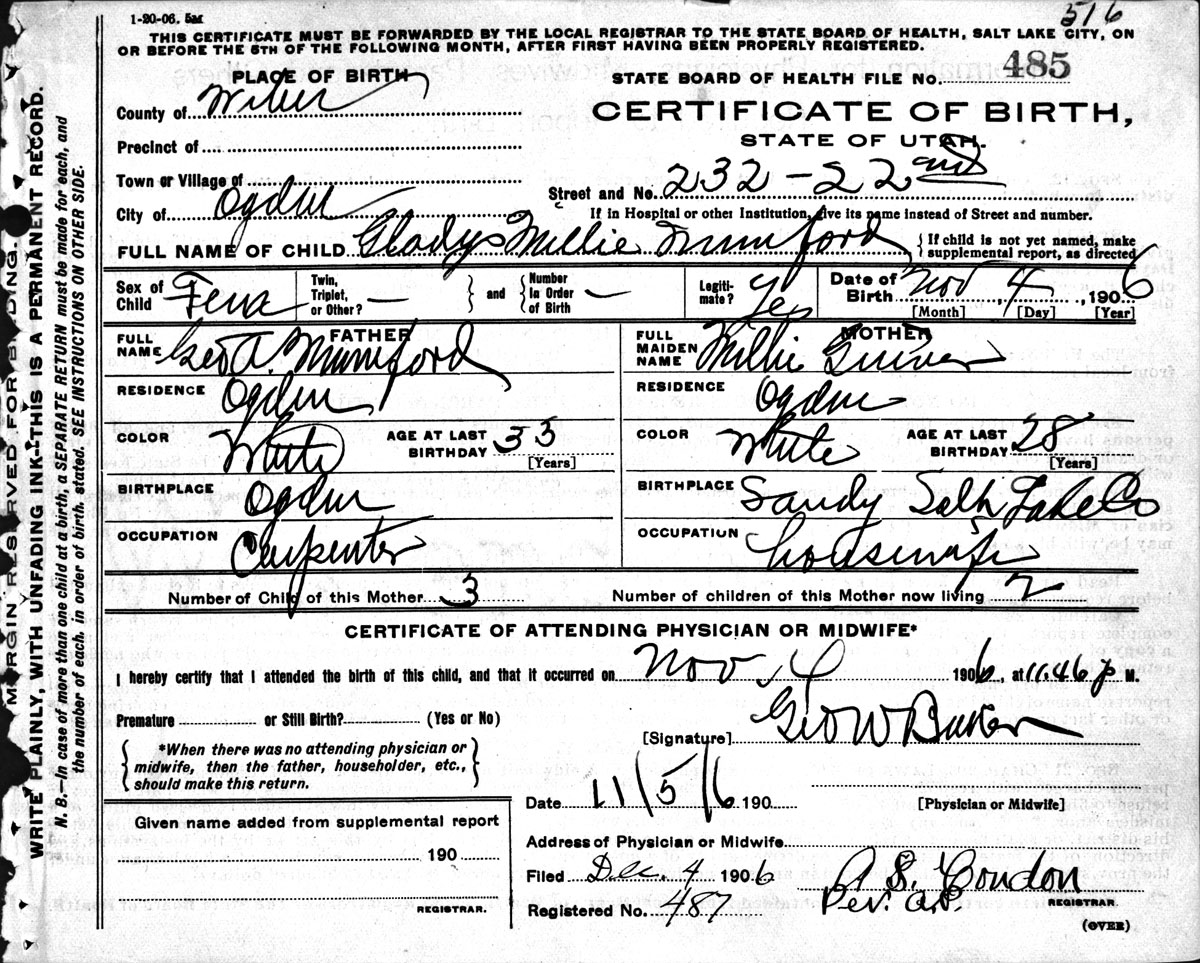 1-20-06. 5M
516
THIS CERTIFICATE MUST BE FORWARDED BY THE LOCAL REGISTRAR TO THE STATE BOARD OF HEALTH, SALT LAKE CITY, ON
OR BEFORE THE 5TH OF THE FOLLOWING MONTH, AFTER FIRST HAVING BEEN PROPERLY REGISTERED.
PLACE OF BIRTH
STATE BOARD OF HEALTH FILE NO. 485
County of Weber
CERTIFICATE OF BIRTH,
STATE OF UTAH.
Precinct of
Town or Village of
Street and No. 232 - 22nd
City of Ogden
If in Hospital or other Institution, give its name instead of Street and number.
FULL NAME OF CHILD Gladys Millie Mumford
{ If child is not yet named, make
supplemental report, as directed
Sex of Child Fem
Twin, Triplet, or Other? —
and
Number In Order of Birth —
Legiti-mate? Yes
Date of Birth Nov 4, 1906
[Month] [Day] [Year]
FATHER
FULL NAME Geo A. Mumford
MOTHER
FULL MAIDEN NAME Millie
RESIDENCE Ogden
RESIDENCE Ogden
COLOR White
AGE AT LAST BIRTHDAY 33
[Years]
COLOR White
AGE AT LAST BIRTHDAY 28
[Years]
BIRTHPLACE Ogden
BIRTHPLACE Sandy Salt Lake Co
OCCUPATION Carpenter
OCCUPATION housewife
Number of Child of this Mother 3
Number of children of this Mother now living 2
CERTIFICATE OF ATTENDING PHYSICIAN OR MIDWIFE*
I hereby certify that I attended the birth of this child, and that it occurred on Nov 4 1906, at 11.46 p M.
Premature or Still Birth? (Yes or No)
[Signature] Geo W Baker
{ *When there was no attending physician or
midwife, then the father, householder, etc.,
should make this return. }
Date 11/5/6 190
[Physician or Midwife]
Given name added from supplemental report
190
REGISTRAR.
Address of Physician or Midwife
Filed Dec. 4 1906
A S. Condon
Registered No. 487
REGISTRAR.
(OVER)
MARGIN RESERVED FOR BINDING.
WRITE PLAINLY, WITH UNFADING INK—THIS IS A PERMANENT RECORD.
N. B.—In case of more than one child at a birth, a SEPARATE RETURN must be made for each, and
the number of each, in order of birth, stated. SEE INSTRUCTIONS ON OTHER SIDE.